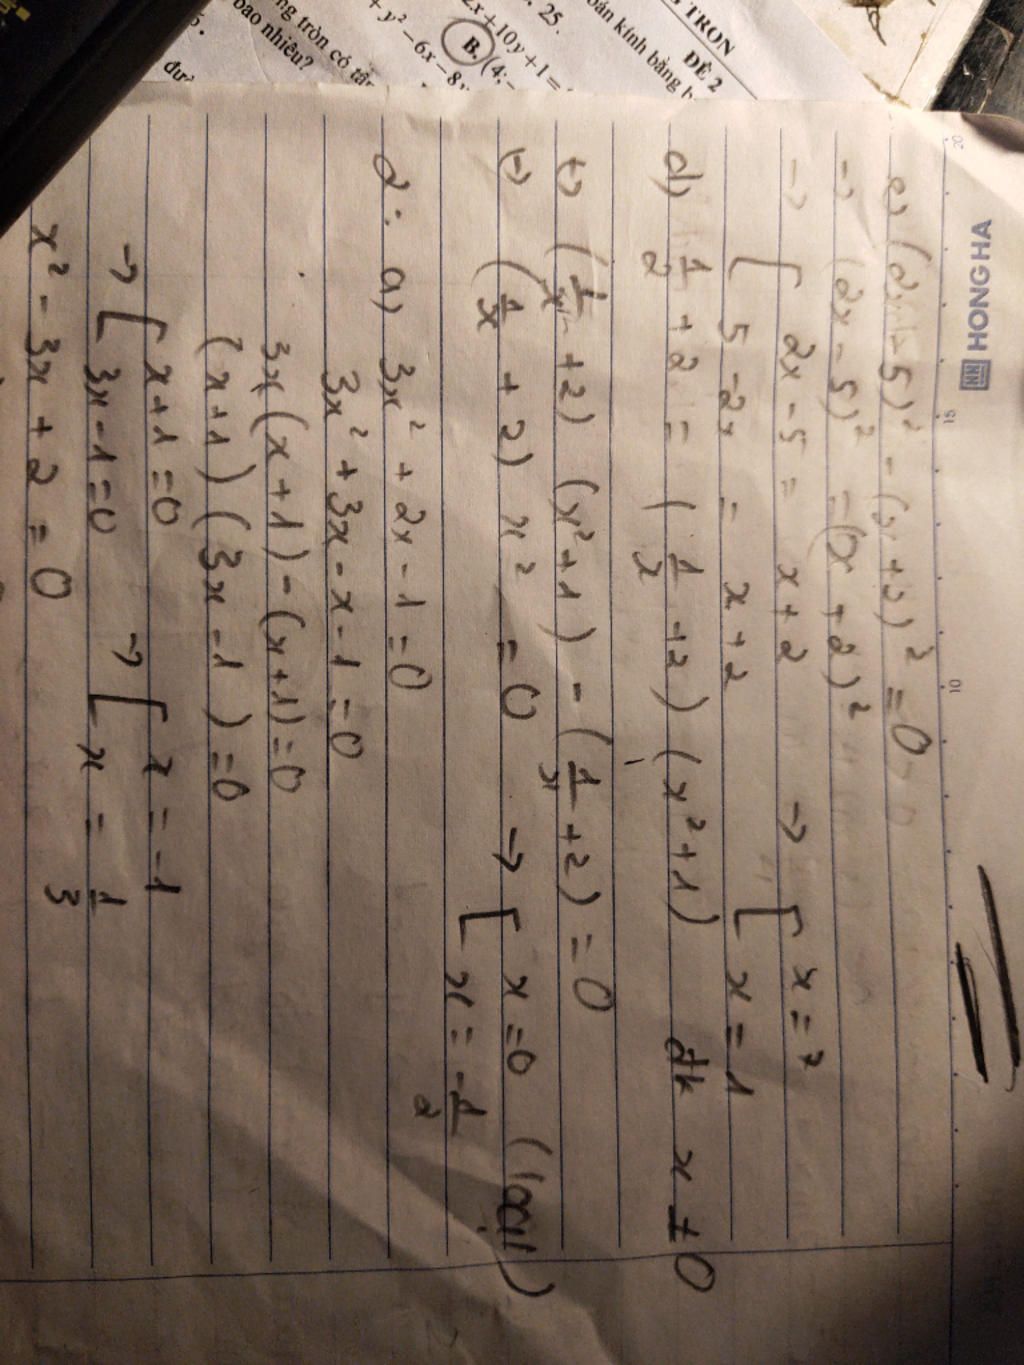 G TRON
ĐỀ 2
bán kính bằng b
. 25.
2x+10y+1=
B. (4;-
+ y² - 6x - 8y
ng tròn có tâ
bao nhiêu?
5.
đườ
HONG HA
20
15
10
c) (2x - 5)² - (x + 2)² = 0
→ (2x - 5)² = (x + 2)²
→ [ 2x - 5 = x + 2 → [ x = 7
[ 5 - 2x = x + 2 [ x = 1
d) 1/2 + 2 = (1/x + 2) (x² + 1) đk x ≠ 0
(1/x + 2) (x² + 1) - (1/x + 2) = 0
(1/x + 2) x² = 0 → [ x = 0 (loại)
[ x = -1/2
2: a) 3x² + 2x - 1 = 0
3x² + 3x - x - 1 = 0
3x (x + 1) - (x + 1) = 0
(x + 1) (3x - 1) = 0
→ [ x + 1 = 0 → [ x = -1
[ 3x - 1 = 0 [ x = 1/3
x² - 3x + 2 = 0